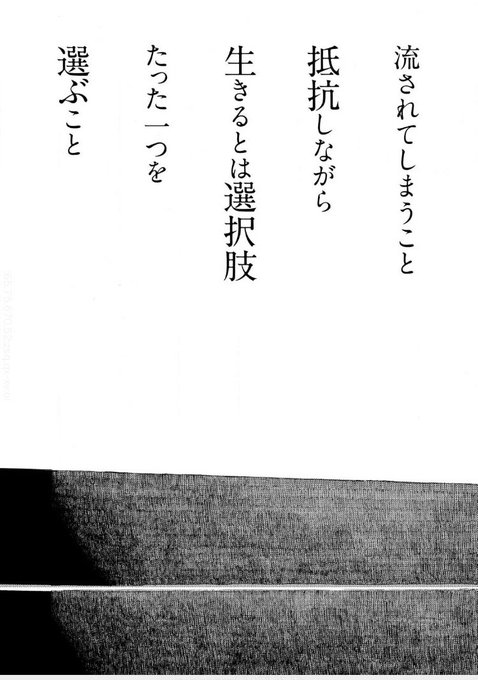 流されてしまうこと
抵抗しながら
生きるとは選択肢
たった一つを
選ぶこと